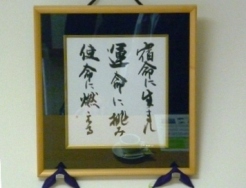 宿命に生まれ
運命に挑み
使命に燃える